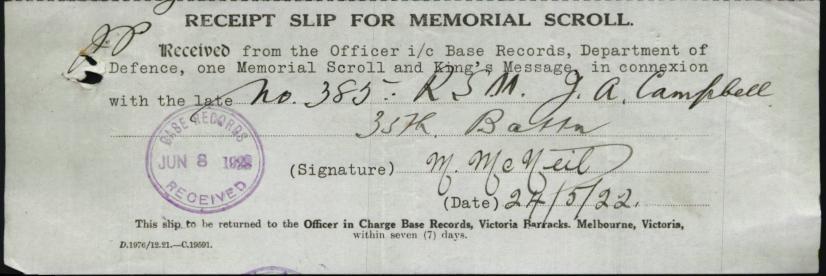 RECEIPT SLIP FOR MEMORIAL SCROLL.
Received from the Officer i/c Base Records, Department of
Defence, one Memorial Scroll and King's Message, in connexion
with the late No. 385 R S M. J. A. Campbell
35th. Battn
BASE RECORDS
JUN 8 1922
RECEIVED
(Signature) M. McNeil
(Date) 24/5/22.
This slip to be returned to the Officer in Charge Base Records, Victoria Barracks. Melbourne, Victoria,
within seven (7) days.
D.1976/12.21.—C.19591.